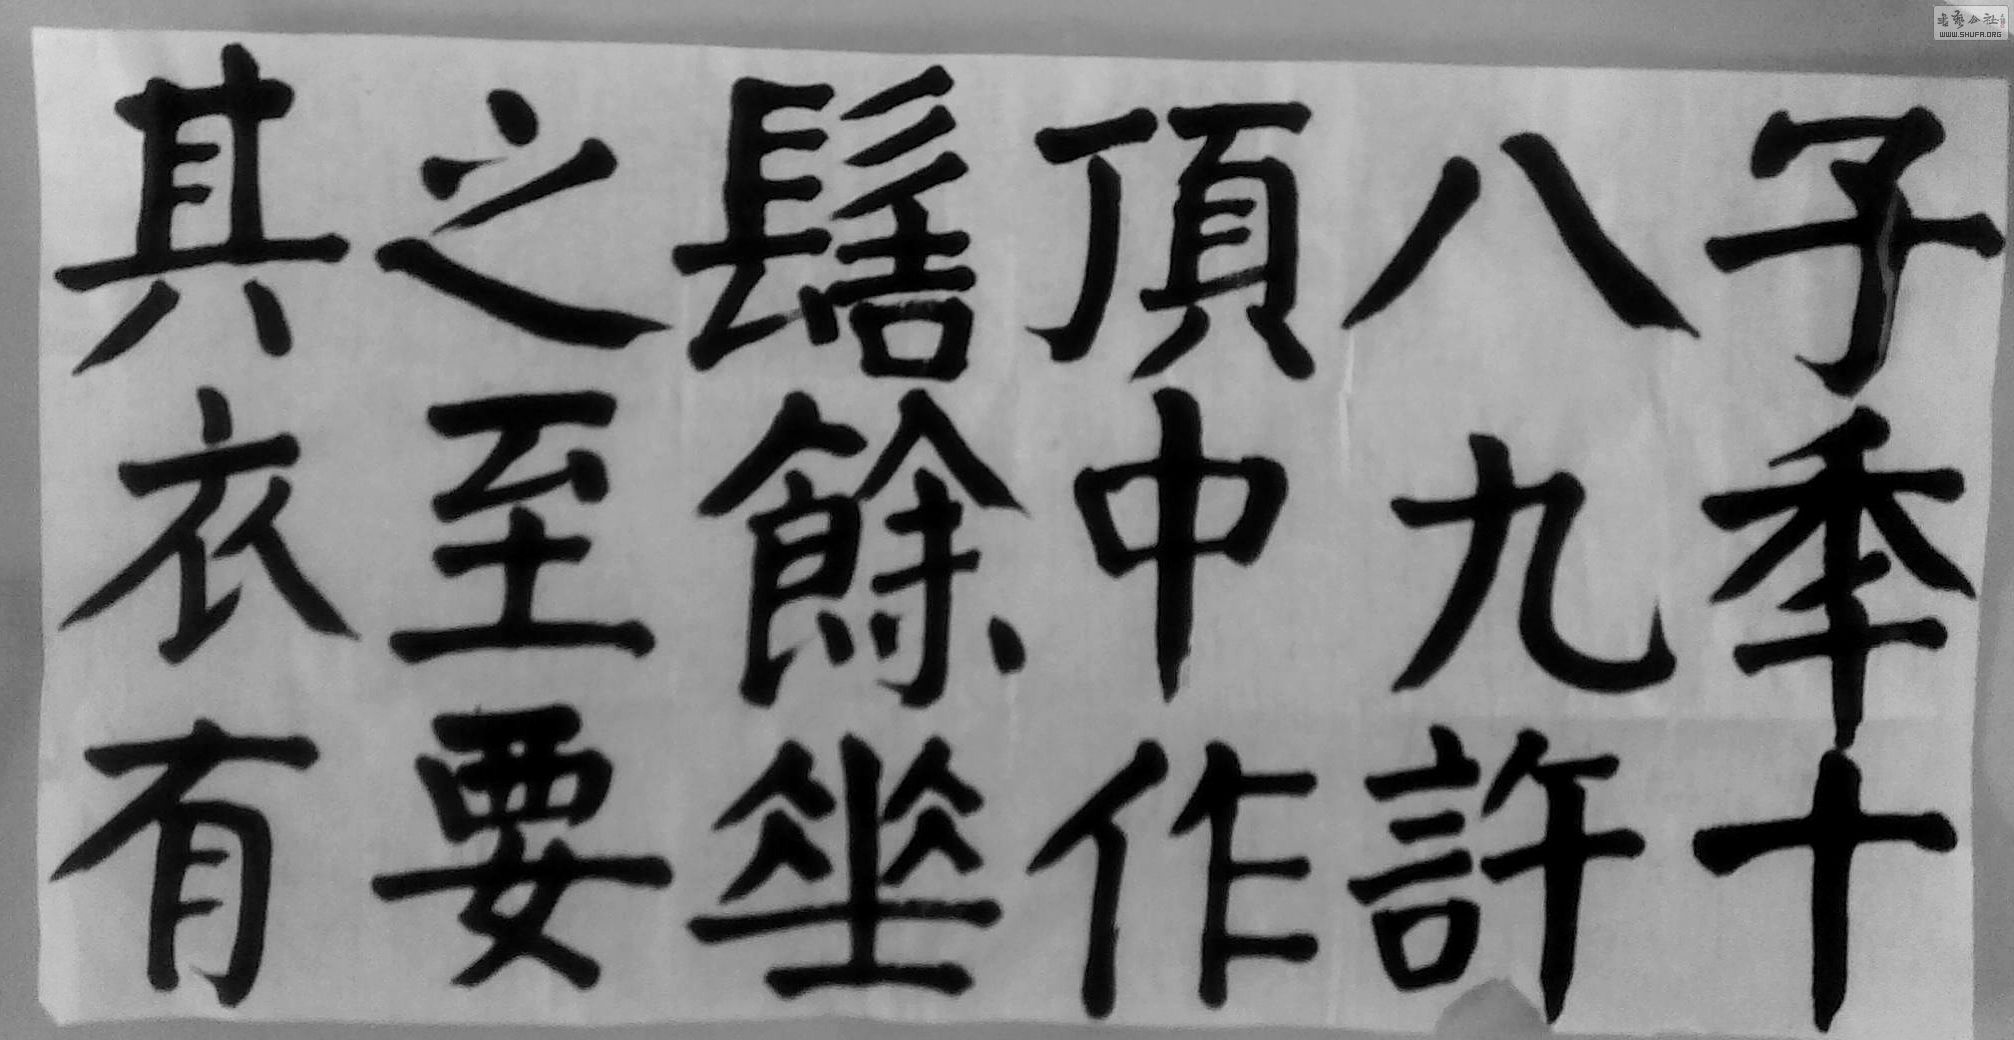 子秊十
八九許
頂中作
髻餘垂
之至要
其衣有
書藝公社
WWW.SHUFA.ORG